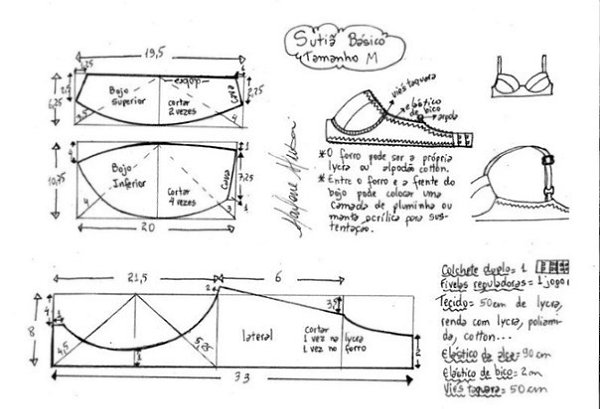 Sutiã Básico
Tamanho M
19,5
6,25
2,5
2,75
3,5
4
Bojo
Superior
dobra
cortar
2 vezes
Cava
10,75
Bojo
Inferior
Cortar
4 vezes
Cava
7,25
4
3
1
20
viés taquara
elástico
de bico
argola
* O forro pode ser a própria
lycra ou algodão cotton.
* Entre o forro e a frente do
bojo pode colocar uma
camada de pluminha ou
manta acrílica para sus-
tentação.
Marlene Mukai
21,5
6
2
3,5
8
4
1
4,5
lateral
Cortar
1 vez na
lycra
1 vez no
forro
2
33
Colchete duplo = 1
Fivelas reguladoras = 1 jogo
Tecido = 50cm de lycra,
renda com lycra, poliami-
da, cotton...
Elástico de alça = 90 cm
Elástico de bico = 2m
Viés taquara = 50 cm